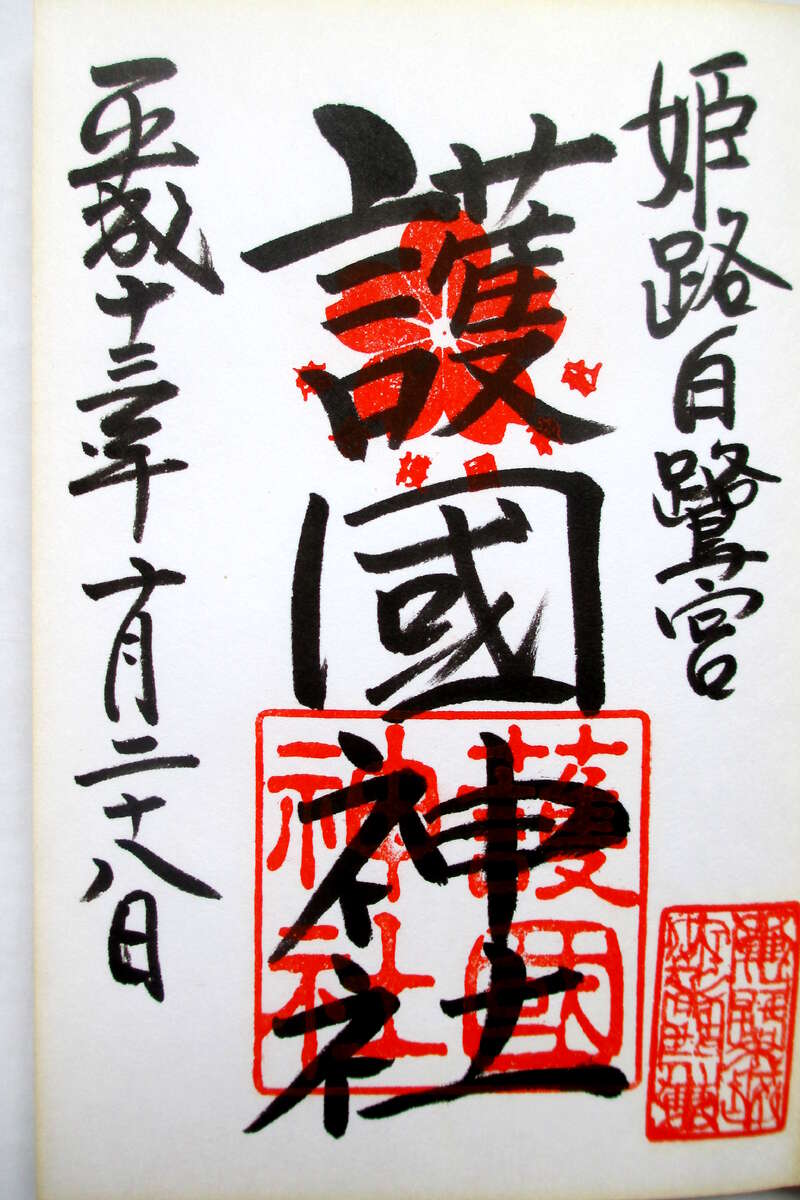 姫路白鷺宮
護國神社
護國神社
平成十三年十月二十八日